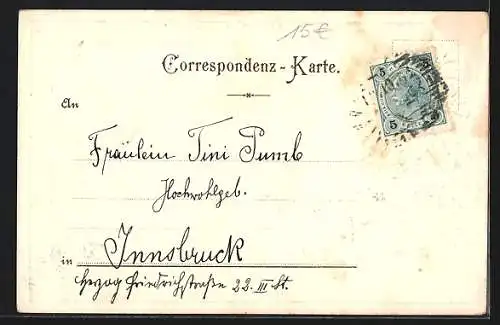 15€
Correspondenz-Karte.
An
Fräulein Tini Pumb
Hochwohlgeb.
in Innsbruck
Herzog Friedrichstraße 22. III St.
5 5